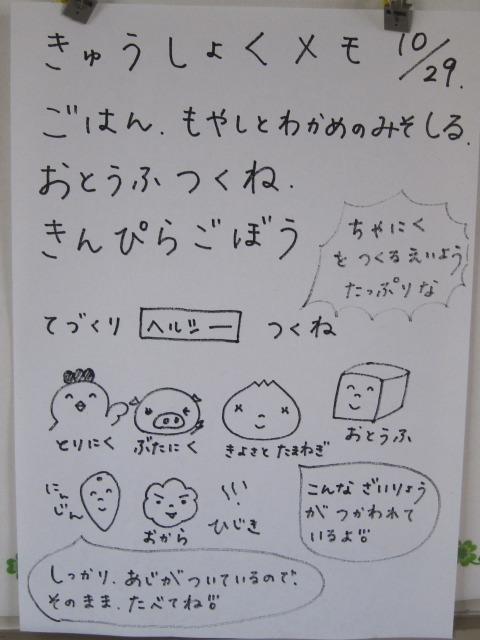 きゅうしょくメモ 10/29.
ごはん.もやしとわかめのみそしる.
おとうふつくね.
きんぴらごぼう
ちゃにく
をつくるえいよう
たっぷりな
てづくり ヘルシー つくね
とりにく ぶたにく きよさとたまねぎ おとうふ
にんじん おから ひじき
こんなざいりょう
がつかわれて
いるよ!!
しっかり.あじがついているので、
そのまま.たべてね!!